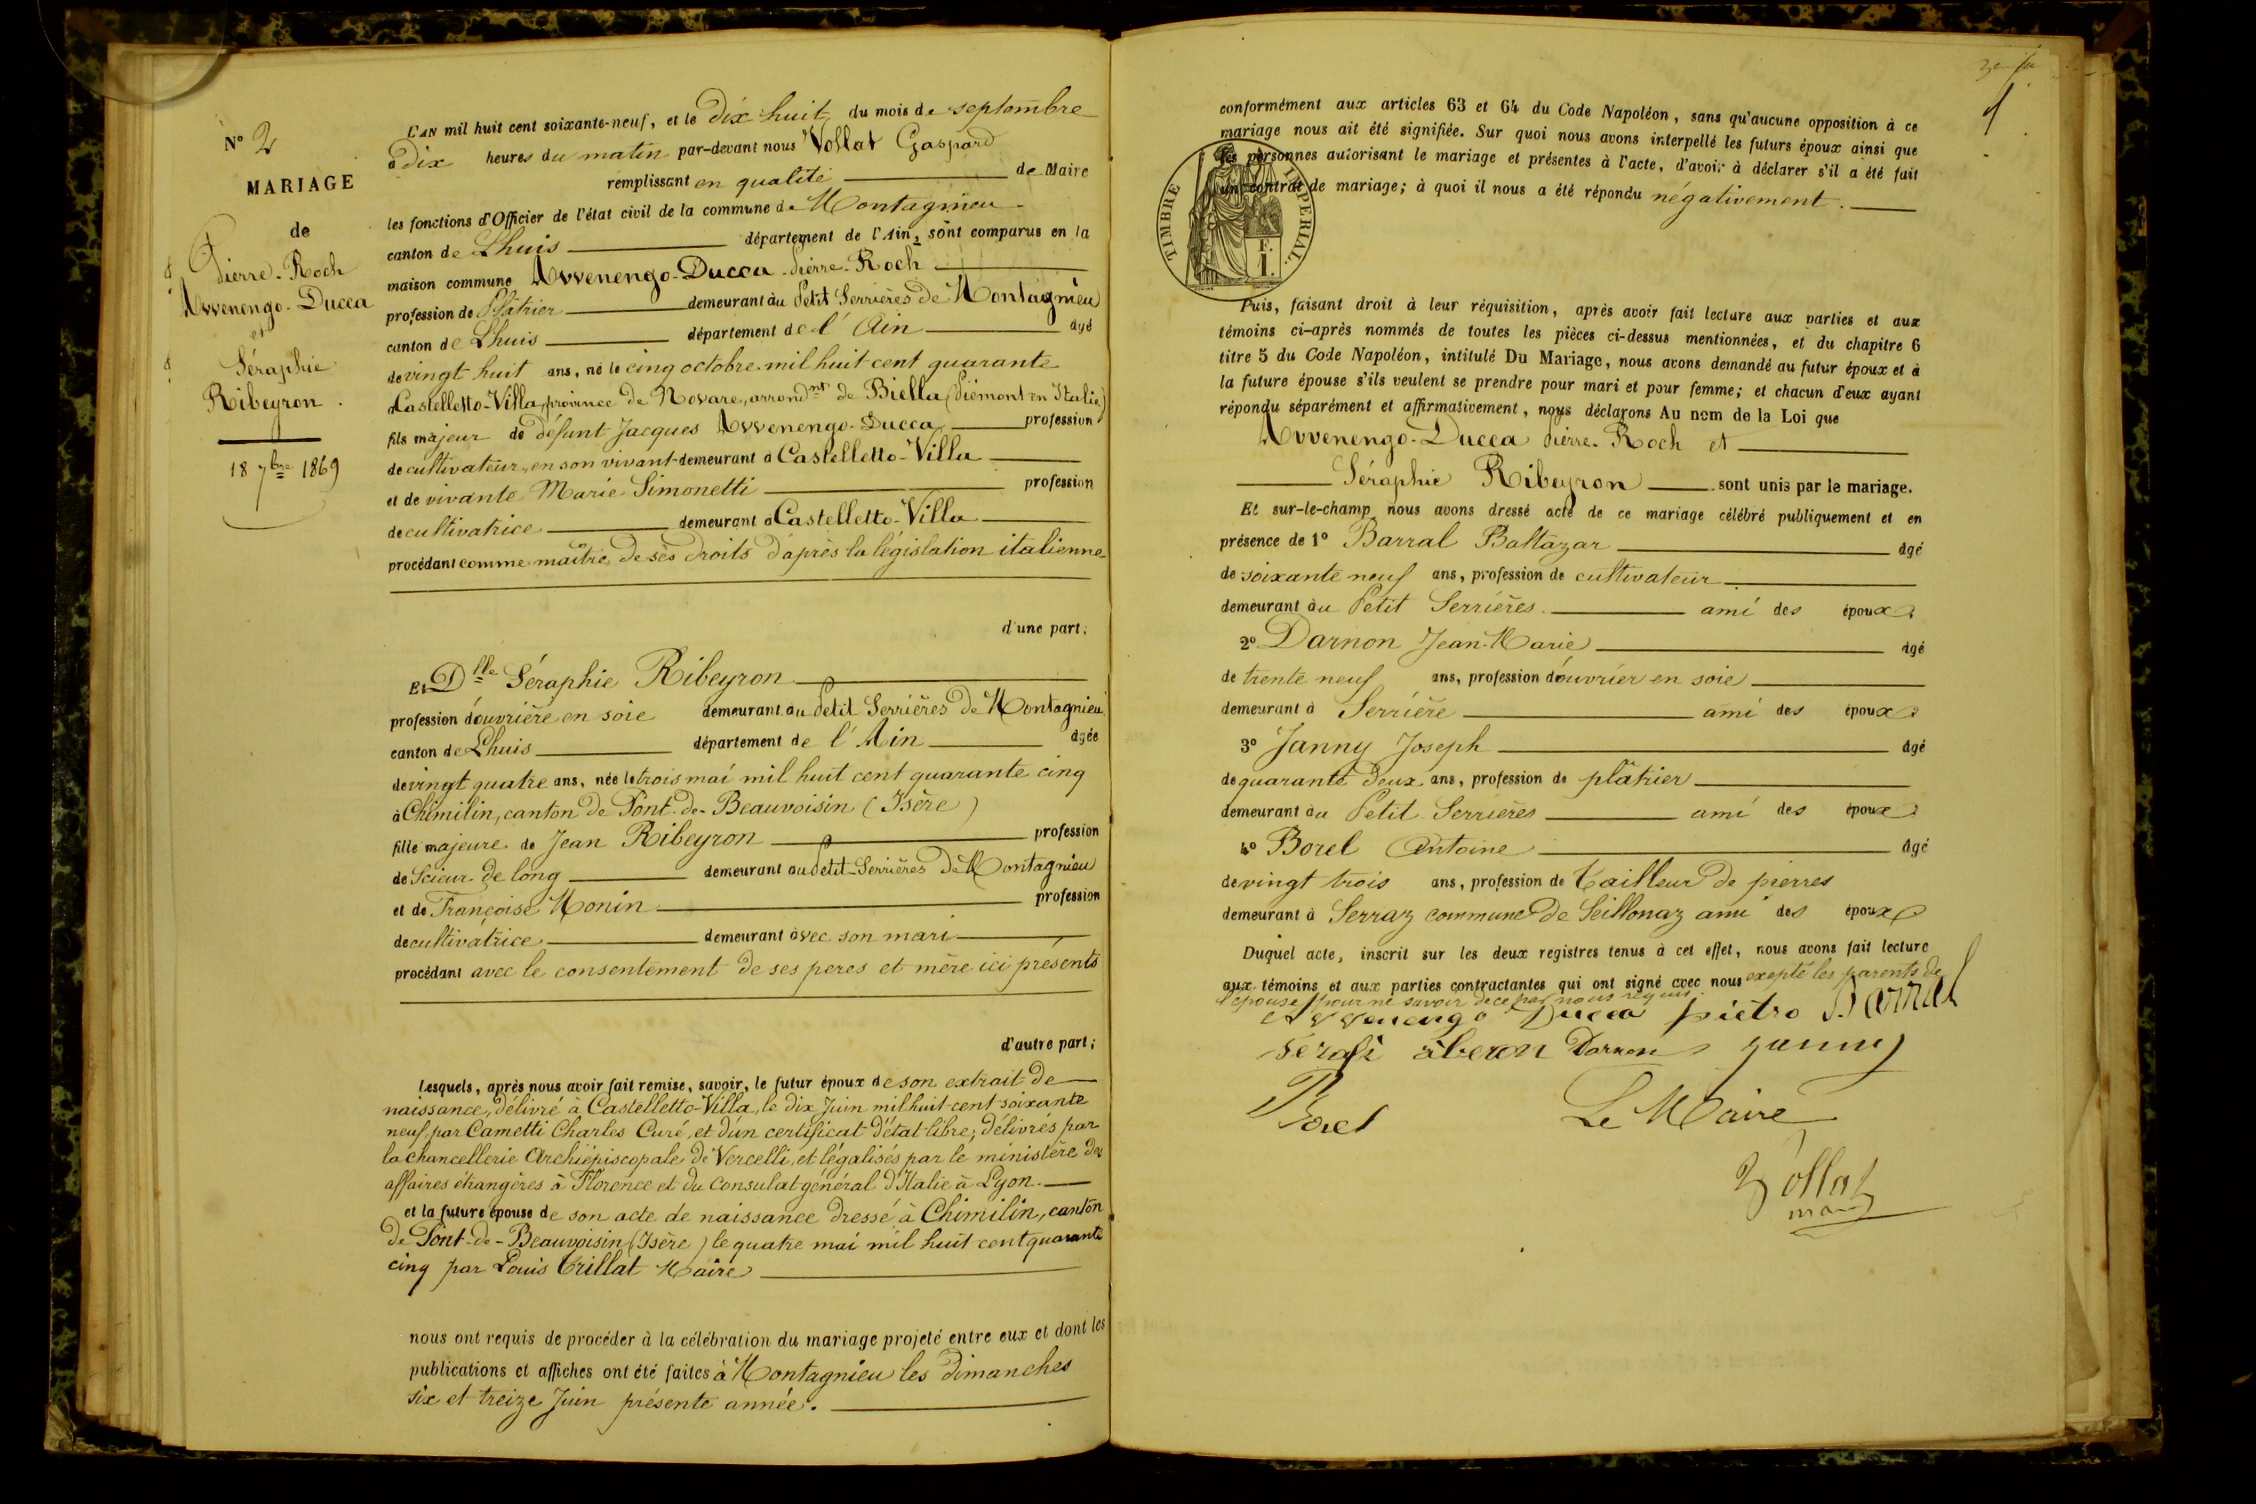 N° 2
MARIAGE
de
Pierre-Roch
Avvenengo-Ducca
et
Séraphie
Ribeyron.
18 7bre 1869
L'AN mil huit cent soixante-neuf, et le dix huit du mois de septembre
à dix heures du matin par-devant nous Vollat Gaspard
remplissant en qualité de Maire
les fonctions d'Officier de l'état civil de la commune de Montagnieu
canton de Lhuis département de l'Ain, sont comparus en la
maison commune Avvenengo-Ducca Pierre-Roch
profession de Plâtrier demeurant au Petit Serrières de Montagnieu
canton de Lhuis département de l'Ain âgé
de vingt huit ans, né le cinq octobre mil huit cent quarante
à Castelletto-Villa, province de Novare, arrondnt de Biella (Piémont en Italie)
fils majeur de défunt Jacques Avvenengo-Ducca, profession
de cultivateur, en son vivant demeurant à Castelletto-Villa
et de vivante Marie Simonetti profession
de cultivatrice demeurant à Castelletto-Villa
procédant comme maître de ses droits d'après la législation italienne
d'une part;
Et Dlle Séraphie Ribeyron
profession d'ouvrière en soie demeurant au Petit Serrières de Montagnieu
canton de Lhuis département de l'Ain âgée
de vingt quatre ans, née le trois mai mil huit cent quarante cinq
à Chimilin, canton de Pont-de-Beauvoisin (Isère)
fille majeure de Jean Ribeyron profession
de Scieur de long demeurant au Petit-Serrières de Montagnieu
et de Françoise Monin profession
de cultivatrice demeurant avec son mari
procédant avec le consentement de ses peres et mère ici présents
d'autre part;
Lesquels, après nous avoir fait remise, savoir, le futur époux de son extrait de
naissance, délivré à Castelletto-Villa, le dix Juin mil huit cent soixante
neuf, par Cametti Charles Curé, et d'un certificat d'état libre; délivrés par
la chancellerie Archiépiscopale de Vercelli, et légalisés par le ministère des
affaires étrangères à Florence et du Consulat général d'Italie à Lyon.
et la future épouse de son acte de naissance dressé à Chimilin, canton
de Pont-de-Beauvoisin (Isère) le quatre mai mil huit cent quarante
cinq par Louis Trillat Maire
nous ont requis de procéder à la célébration du mariage projeté entre eux et dont les
publications et affiches ont été faites à Montagnieu les dimanches
six et treize Juin présente année.
conformément aux articles 63 et 64 du Code Napoléon, sans qu'aucune opposition à ce
mariage nous ait été signifiée. Sur quoi nous avons interpellé les futurs époux ainsi que
les personnes autorisant le mariage et présentes à l'acte, d'avoir à déclarer s'il a été fait
un contrat de mariage; à quoi il nous a été répondu négativement.
TIMBRE IMPERIAL.
F.
I.
Puis, faisant droit à leur réquisition, après avoir fait lecture aux parties et aux
témoins ci-après nommés de toutes les pièces ci-dessus mentionnées, et du chapitre 6
titre 5 du Code Napoléon, intitulé Du Mariage, nous avons demandé au futur époux et à
la future épouse s'ils veulent se prendre pour mari et pour femme; et chacun d'eux ayant
répondu séparément et affirmativement, nous déclarons Au nom de la Loi que
Avvenengo-Ducca Pierre-Roch et
Séraphie Ribeyron sont unis par le mariage.
Et sur-le-champ nous avons dressé acte de ce mariage célébré publiquement et en
présence de 1° Barral Baltazar âgé
de soixante neuf ans, profession de cultivateur
demeurant au Petit Serrières ami des époux
2° Darnon Jean-Marie âgé
de trente neuf ans, profession d'ouvrier en soie
demeurant à Serrière ami des époux
3° Janny Joseph âgé
de quarante deux ans, profession de plâtrier
demeurant au Petit Serrieres ami des époux
4° Borel Antoine âgé
de vingt trois ans, profession de Tailleur de pierres
demeurant à Serraz commune de Seillonaz ami des époux
Duquel acte, inscrit sur les deux registres tenus à cet effet, nous avons fait lecture
aux témoins et aux parties contractantes qui ont signé avec nous exepté les parents de
l'épouse pour ne savoir de ce par nous requis.
Avvenengo Ducca pietro Barral
Serafi riberon Darnon Janny
Borel Le Maire
Vollat